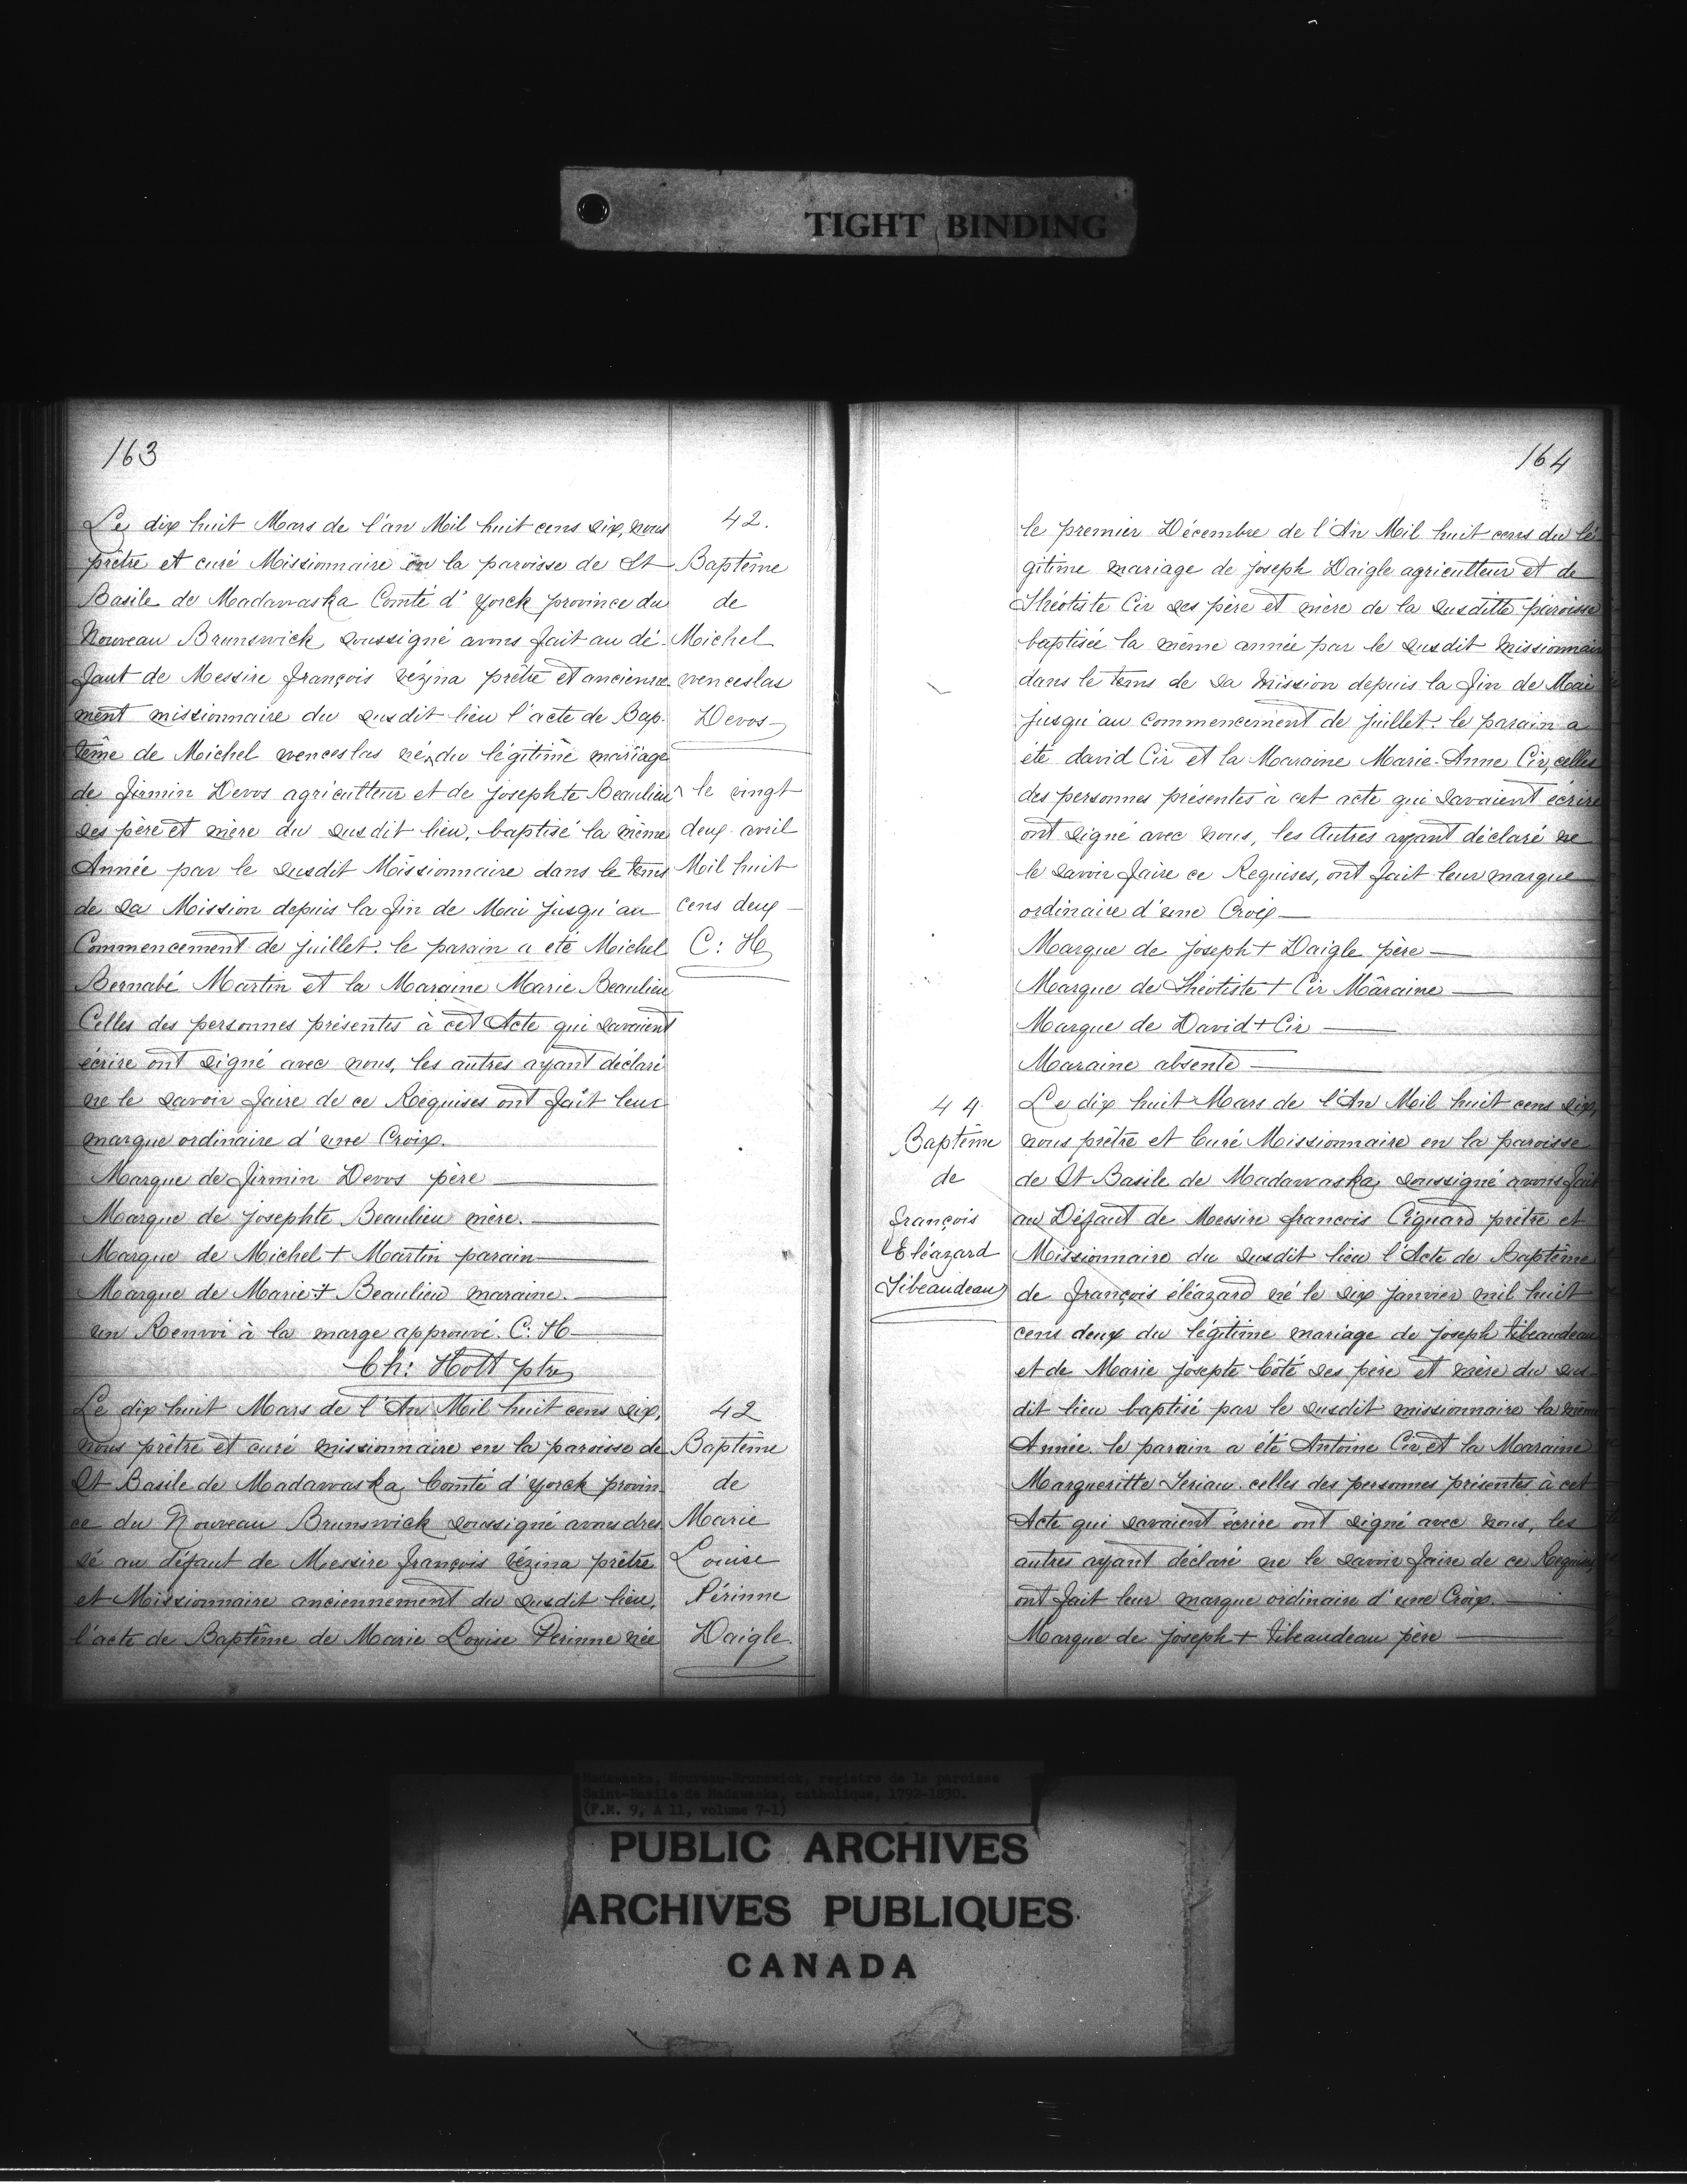 TIGHT BINDING
163
Le dix huit Mars de l'an Mil huit cens six, nous
prêtre et curé Missionnaire en la paroisse de St
Basile de Madawaska Comté d'Yorck province du
Nouveau Brunswick soussigné avons fait au dé-
faut de Messire françois vézina prêtre et ancienne-
ment missionnaire du susdit lieu l'acte de Bap-
tême de Michel venceslas né^du légitime mariage
de firmin Devos agriculteur et de josephte Beaulieu
ses père et mère du susdit lieu, baptisé la même
Année par le susdit Missionnaire dans le tems
de sa Mission depuis la fin de Mai jusqu'au
Commencement de juillet. le parain a été Michel
Bernabé Martin et la Maraine Marie Beaulieu
Celles des personnes présentes à cet Acte qui savaient
écrire ont signé avec nous, les autres ayant déclaré
ne le savoir faire de ce Requises ont fait leur
marque ordinaire d'une Croix.
Marque de firmin Devos père
Marque de josephte Beaulieu mère.
Marque de Michel + Martin parain
Marque de Marie + Beaulieu maraine.
un Renvoi à la marge approuvé. C: H
Ch: Hott ptre
Le dix huit Mars de l'An Mil huit cens six,
nous prêtre et curé missionnaire en la paroisse de
St Basile de Madawaska Comté d'yorck provin
ce du Nouveau Brunswick soussigné avons dres
sé au défaut de Messire françois vézina prêtre
et Missionnaire anciennement du susdit lieu,
l'acte de Baptême de Marie Louise Perinne née
42.
Baptême
de
Michel
venceslas
Devos
^ le vingt
deux avril
Mil huit
cens deux
C: H
42
Baptême
de
Marie
Louise
Périnne
Daigle.
164
le premier Décembre de l'An Mil huit cens du lé
gitime mariage de joseph Daigle agriculteur et de
Théotiste Cir ses père et mère de la susditte paroisse
baptisée la même année par le susdit missionnaire
dans le tems de sa mission depuis la fin de Mai
jusqu'au commencement de juillet. le parain a
été david Cir et la Maraine Marie-Anne Cir, celles
des personnes présentes à cet acte qui savaient écrire
ont signé avec nous, les Autres ayant déclaré ne
le savoir faire ce Requises, ont fait leur marque
ordinaire d'une Croix
Marque de joseph + Daigle père
Marque de Théotiste + Cir Mâraine
Marque de David + Cir
Maraine absente
Le dix huit Mars de l'An Mil huit cens six,
nous prêtre et Curé Missionnaire en la paroisse
de St Basile de Madawaska soussigné avons fait
au Défaut de Messire francois Ciquard prêtre et
Missionnaire du susdit lieu l'Acte de Baptême
de françois éléazard né le six janvier mil huit
cens deux du légitime mariage de joseph tibeaudeau
et de Marie josepte Côté ses père et mère du sus
dit lieu baptisé par le susdit missionnaire la même
Année. le parain a été Antoine Cir, et la Maraine
Margueritte Teriau. celles des personnes présentes à cet
Acte qui savaient écrire ont signé avec nous, les
autres ayant déclaré ne le savoir faire de ce Requises
ont fait leur marque ordinaire d'une Croix
Marque de joseph + tibeaudeau père
44.
Baptême
de
françois
Eléazard
Tibeaudeau
Madawaska, Nouveau-Brunswick, registre de la paroisse
Saint-Basile de Madawaska, catholique, 1792-1830.
(F.M. 9, A 11, volume 7-1)
PUBLIC ARCHIVES
ARCHIVES PUBLIQUES
CANADA